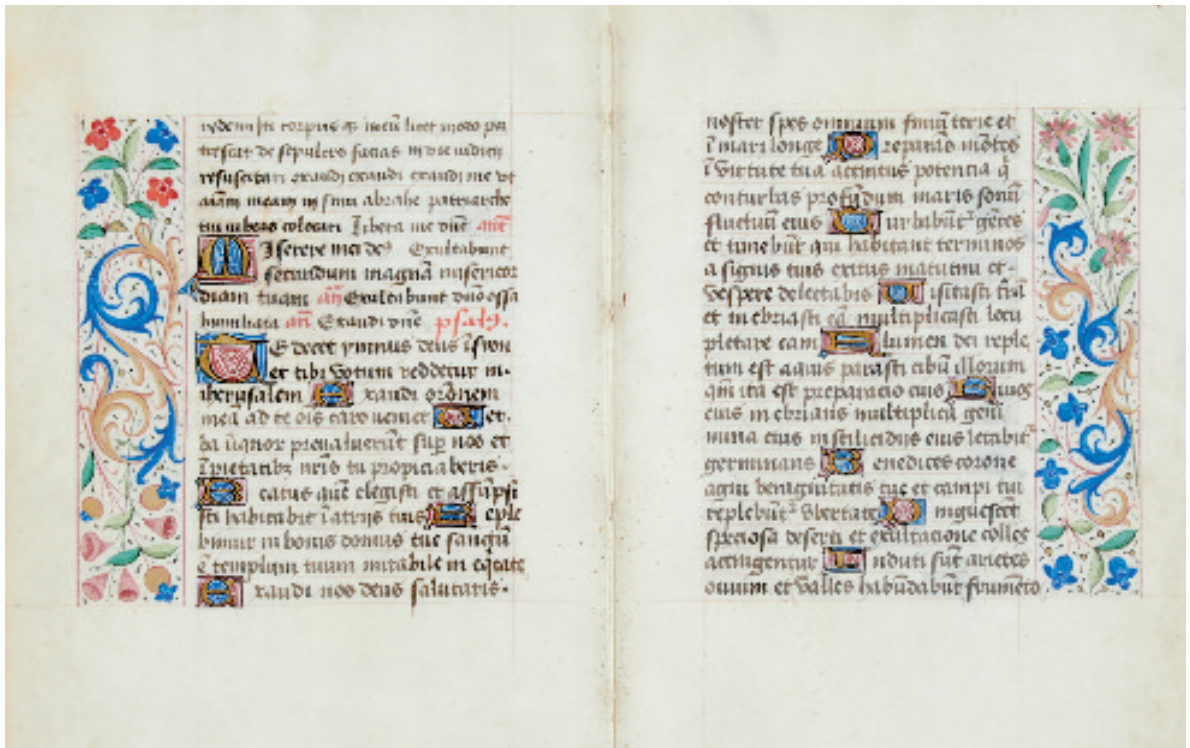 redemisti corpus qȝ meū licet modo pu
trescat de sepulcro facias in die iudicii
resuscitari exaudi exaudi exaudi me vt
aīam meam in sinu abrahe patriarche
tui iubeas colocari Libera me dn̄e an̄t
Miserere mei deꝰ Exultabunt
secundum magnā misericor
diam tuam an̄ Exultabunt dn̄o ossa
humiliata an̄ Exaudi dn̄e psalȝ.
Te decet ymnus deus ī syon
et tibi votum reddetur in
iherusalem Exaudi orōnem
meā ad te oīs caro veniet et
ba īiquor preualuerūt sup̄ nos et
īpietatibȝ nr̄is tu propiciaberis
Beatus quē elegisti et assūpsi
sti habitabit ī atriis tuis Reple
bimur in bonis domus tue sanctū
ē templum tuum mirabile in eq̄tate
Exaudi nos deus salutaris
noster spes omnium finiū terre et
ī mari longe Preparās mōtes
ī virtute tua accintus potencia q̄
conturbas profūdum maris sonū
fluctuū eius Turbabūtᷣ gētes
et timebūt qui habitant terminos
a signis tuis exitus matutini et
vespere delectabis Visitasti tr̄ā
et inebriasti eā multiplicasti locu
pletare eam Flumen dei reple
tum est aquis parasti cibū illorum
qm̄ ita est preparacio eius Riuos
eius inebrians multiplica geni
mina eius in stilicidiis eius letabitᷣ
germinans Benedices corone
anni benignitatis tue et campi tui
replebūtᷣ vbertate Pinguescēt
speciosa deserti et exultacione colles
accingentur Induti sūt arietes
ouium et valles habūdabūt frumēto